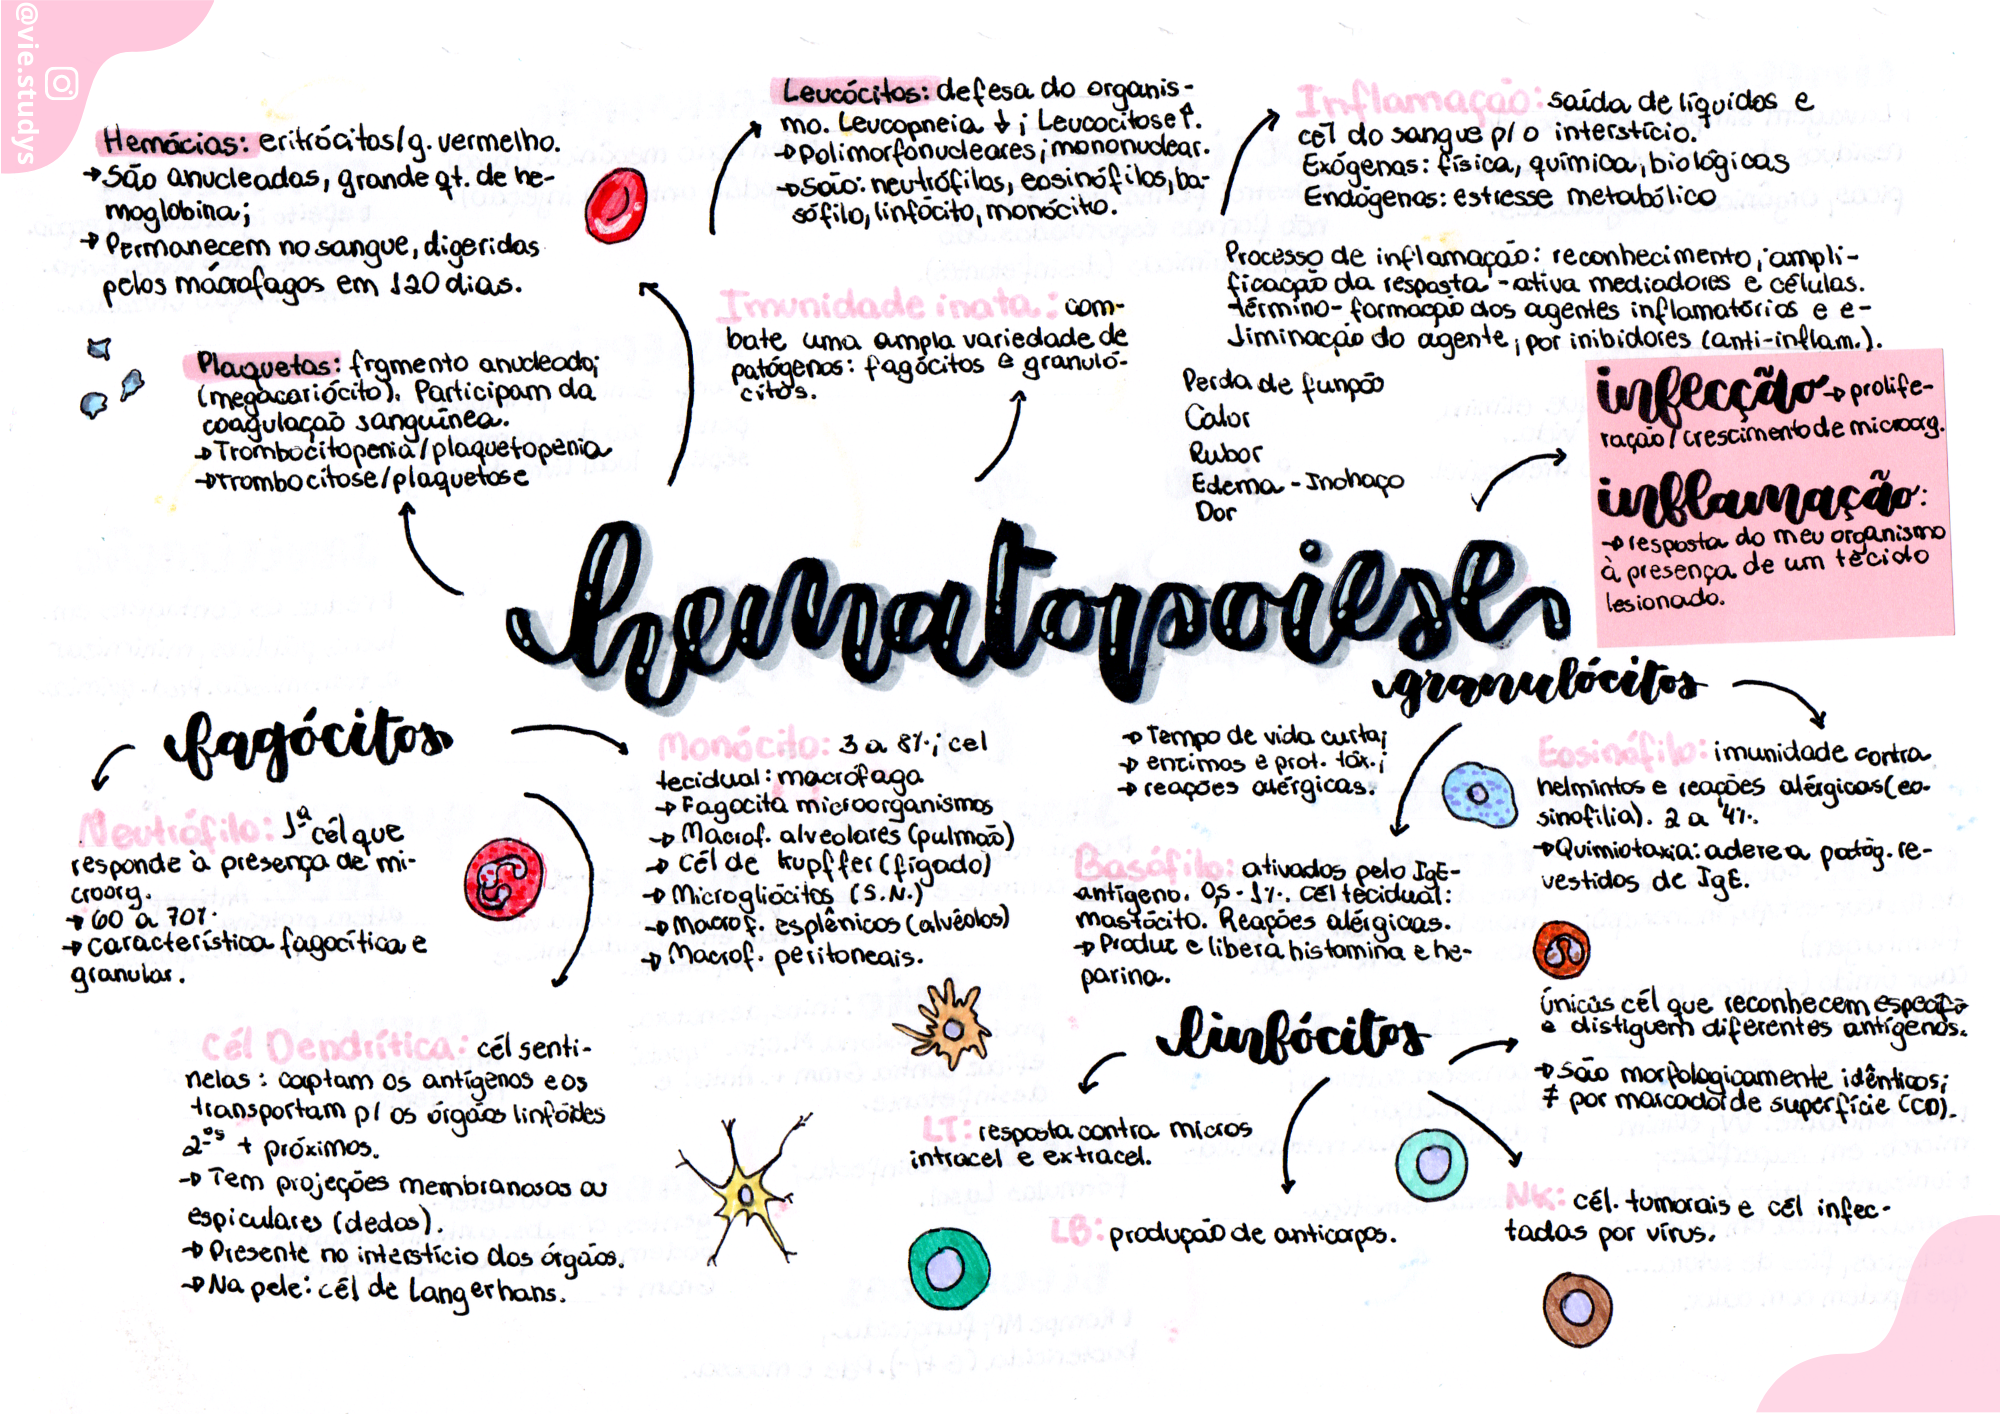 @vie.studys
Hemácias: eritrócitos/g. vermelho.
→São anucleadas, grande qt. de he-
moglobina;
→Permanecem no sangue, digeridas
pelos macrofagos em 120 dias.
Plaquetas: frgmento anucleado;
(megacariócito). Participam da
coagulação sanguínea.
→Trombocitopenia/plaquetopenia
→Trombocitose/plaquetose
Leucócitos: defesa do organis-
mo. Leucopneia ↓; Leucocitose↑.
→Polimorfonucleares; mononuclear.
→São: neutrófilos, eosinófilos, ba-
sófilo, linfócito, monócito.
Imunidade inata: com-
bate uma ampla variedade de
patógenos: fagócitos e granuló-
citos.
Inflamação: saída de líquidos e
cél do sangue p/ o interstício.
Exógenas: física, química, biológicas
Endógenas: estresse metabólico
Processo de inflamação: reconhecimento; ampli-
ficação da resposta - ativa mediadores e células.
término- formação dos agentes inflamatórios e e-
liminação do agente, por inibidores (anti-inflam.).
Perda de função
Calor
Rubor
Edema - Inchaço
Dor
infecção→prolife-
ração/crescimento de microorg.
inflamação:
→resposta do meu organismo
à presença de um tecido
lesionado.
hematopoiese
fagócitos
Neutrófilo: 1ª cél que
responde à presença de mi-
croorg.
→ 60 a 70%.
→ característica fagocítica e
granular.
Monócito: 3 a 8%; cel
tecidual: macrófaga
→ Fagocita microorganismos
→ Macrof. alveolares (pulmão)
→ Cél de kupffer (fígado)
→ Microgliócitos (S.N.)
→ Macrof. esplênicos (alvéolos)
→ Macrof. peritoneais.
Cél Dendrítica: cél senti-
nelas: captam os antígenos e os
transportam p/ os órgãos linfóides
2ºs + próximos.
→ Tem projeções membranosas ou
espiculares (dedos).
→ Presente no interstício dos órgãos.
→ Na pele: cél de Langerhans.
granulócitos
→ Tempo de vida curta;
→ enzimas e prot. tóx.;
→ reações alérgicas.
Basófilo: ativados pelo IgE-
antígeno. 0,5 - 1%. cél tecidual:
mastócito. Reações alérgicas.
→ Produz e libera histamina e he-
parina.
Eosinófilo: imunidade contra
helmintos e reações alérgicas (eo-
sinofilia). 2 a 4%.
→Quimiotaxia: adere a patóg. re-
vestidos de IgE.
linfócitos
únicas cél que reconhecem específ.
e distiguem diferentes antígenos.
→ São morfologicamente idênticos;
≠ por marcador de superfície (CD).
LT: resposta contra micros
intracel e extracel.
LB: produção de anticorpos.
NK: cél. tumorais e cél infec-
tadas por vírus.